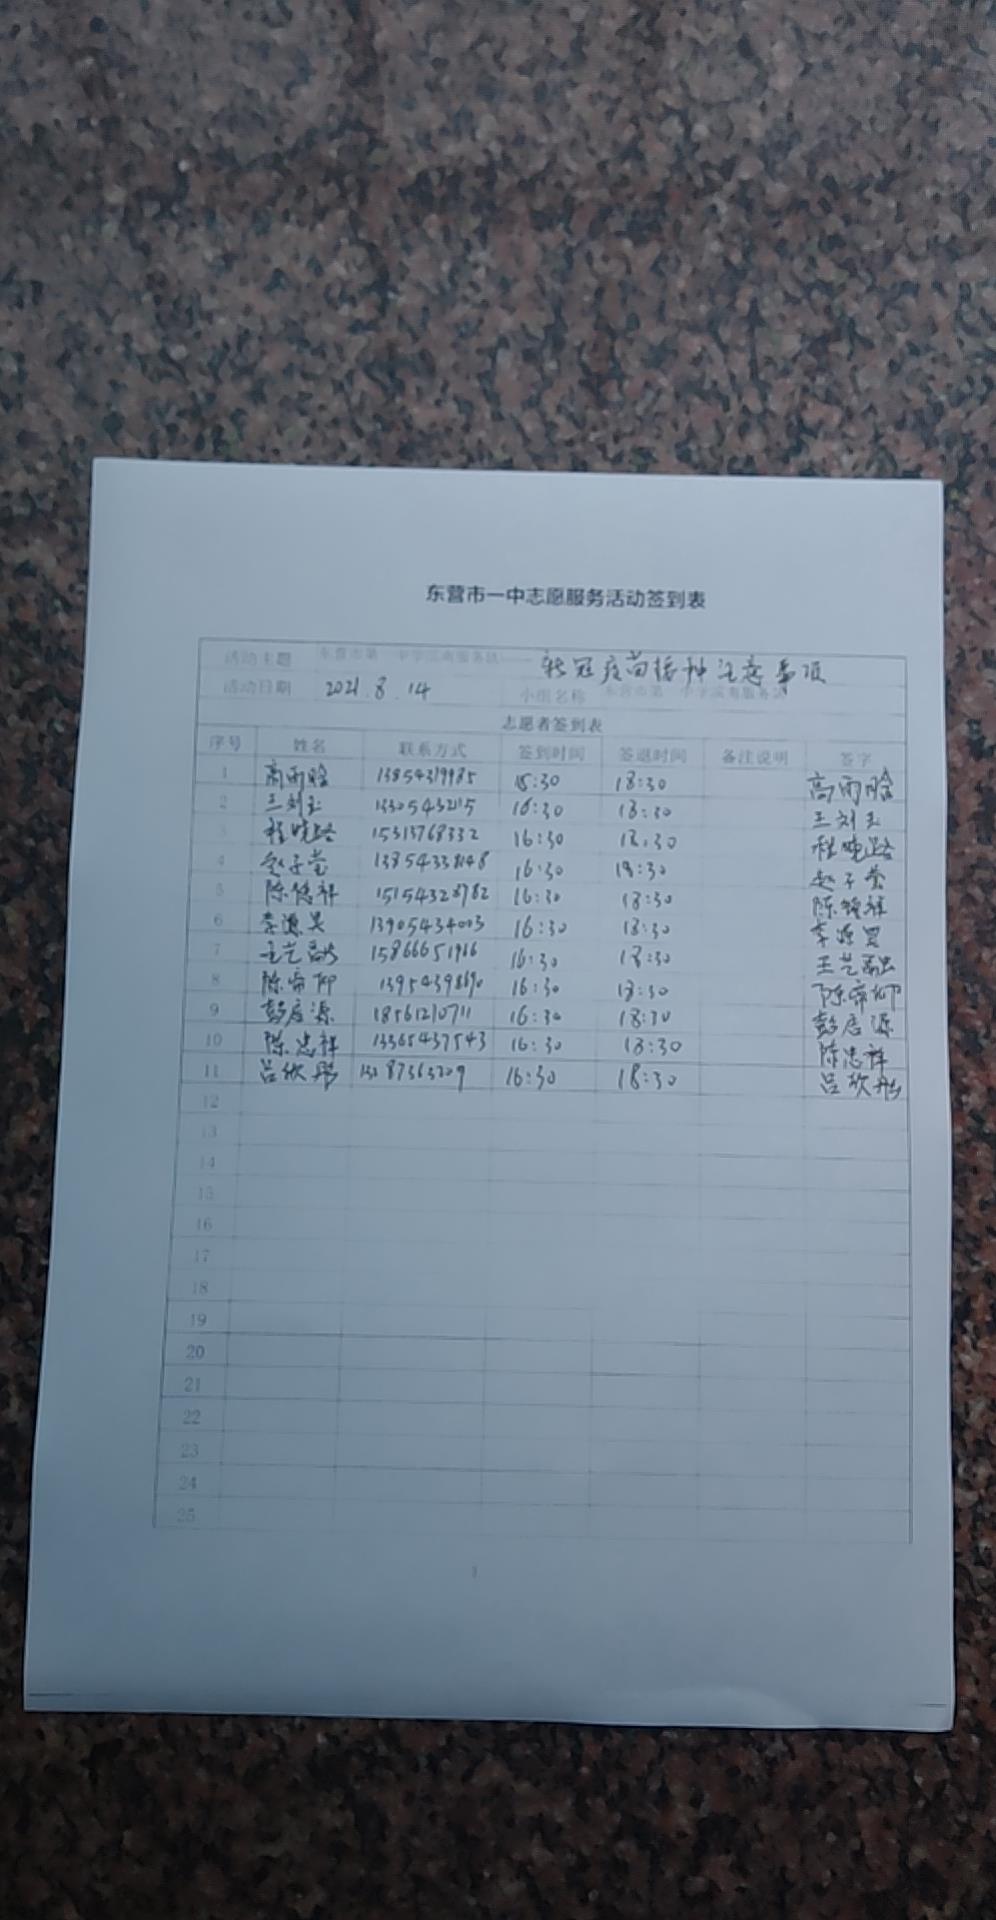 东营市一中志愿服务活动签到表
活动主题 东营市第一中学滨南服务队——新冠疫苗接种注意事项
活动日期 2021.8.14 小组名称 东营市第一中学滨南服务队
志愿者签到表
序号 姓名 联系方式 签到时间 签退时间 备注说明 签字
1 高雨晗 13854319985 16:30 18:30 高雨晗
2 王刘玉 16:30 18:30 王刘玉
3 程晓路 15313768332 16:30 18:30 程晓路
4 赵子莹 16:30 18:30 赵子莹
5 15154328782 16:30 18:30
6 李源昊 13905434003 16:30 18:30 李源昊
7 王艺融 15866651966 16:30 18:30 王艺融
8 陈帝仰 16:30 18:30 陈帝仰
9 彭启源 18561210711 16:30 18:30 彭启源
10 陈忠祥 13365437543 16:30 18:30 陈忠祥
11 吕欣彤 16:30 18:30 吕欣彤
12
13
14
15
16
17
18
19
20
21
22
23
24
25
1